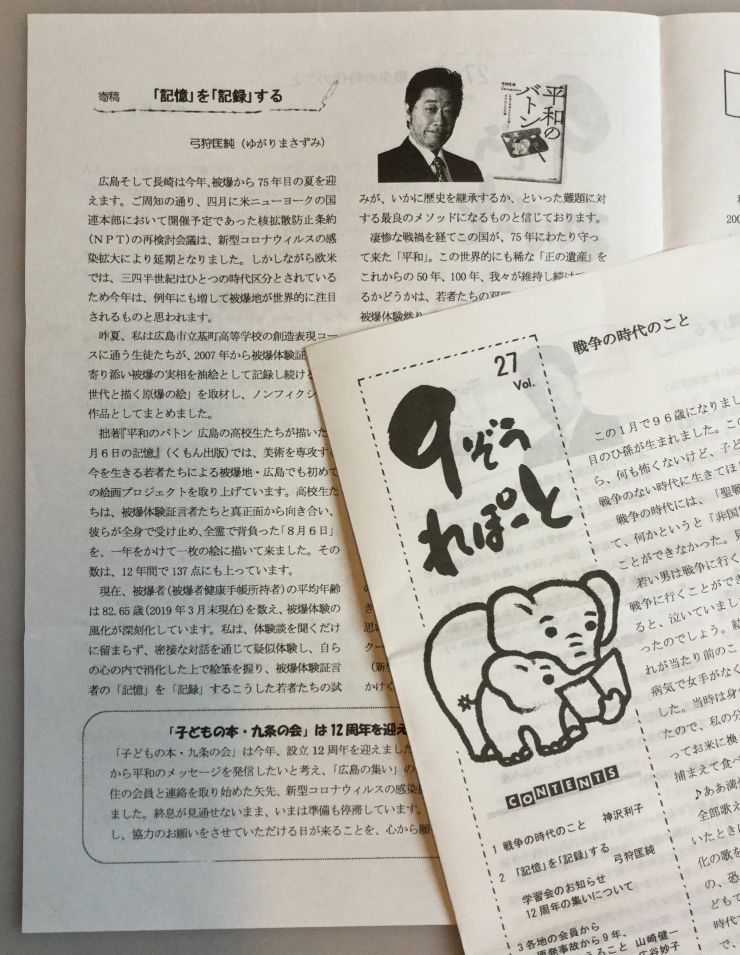 寄稿 「記憶」を「記録」する
弓狩匡純（ゆがりまさずみ）
広島そして長崎は今年、被爆から75年目の夏を迎
えます。ご周知の通り、四月に米ニューヨークの国
連本部において開催予定であった核拡散防止条約
（NPT）の再検討会議は、新型コロナウィルスの感
染拡大により延期となりました。しかしながら欧米
では、三四半世紀はひとつの時代区分とされている
ため今年は、例年にも増して被爆地が世界的に注目
されるものと思われます。
昨夏、私は広島市立基町高等学校の創造表現コー
スに通う生徒たちが、2007年から被爆体験証
寄り添い被爆の実相を油絵として記録し続ける
世代と描く原爆の絵」を取材し、ノンフィクシ
作品としてまとめました。
拙著『平和のバトン 広島の高校生たちが描いた
月6日の記憶』（くもん出版）では、美術を専攻す
今を生きる若者たちによる被爆地・広島でも初めて
の絵画プロジェクトを取り上げています。高校生た
ちは、被爆体験証言者たちと真正面から向き合い、
彼らが全身で受け止め、全霊で背負った「8月6日」
を、一年をかけて一枚の絵に描いて来ました。その
数は、12年間で137点にも上っています。
現在、被爆者（被爆者健康手帳所持者）の平均年齢
は82.65歳（2019年3月末現在）を数え、被爆体験の
風化が深刻化しています。私は、体験談を聞くだけ
に留まらず、密接な対話を通じて疑似体験し、自ら
の心の内で消化した上で絵筆を握り、被爆体験証言
者の「記憶」を「記録」するこうした若者たちの試
平和の
バトン
みが、いかに歴史を継承するか、といった難題に対
する最良のメソッドになるものと信じております。
凄惨な戦禍を経てこの国が、75年にわたり守っ
て来た「平和」。この世界的にも稀な「正の遺産」を
これからの50年、100年、我々が維持し続け
るかどうかは、若者たちの双
被爆体験
「子どもの本・九条の会」は12周年を迎え
「子どもの本・九条の会」は今年、設立12周年を迎えました
から平和のメッセージを発信したいと考え、「広島の集い」の
住の会員と連絡を取り始めた矢先、新型コロナウィルスの感染
ました。終息が見通せないまま、いまは準備も停滞しています。
し、協力のお願いをさせていただける日が来ることを、心から願
27
Vol.
9ぞう
れぽーと
CONTENTS
1 戦争の時代のこと 神沢利子
2 「記憶」を「記録」する 弓狩匡純
学習会のお知らせ
12周年の集いについて
3 各地の会員から
原発事故から9年、
うること 山崎健一
広谷妙子
戦争の時代のこと
この1月で96歳になりまし
目のひ孫が生まれました。こ
ら、何も怖くないけど、子ど
戦争のない時代に生きてほ
戦争の時代には、「聖戦
て、何かというと「非国
ことができなかった。見
若い男は戦争に行く
戦争に行くことができ
ると、泣いていまし
ったのでしょう。結
れが当たり前のこ
病気で女手がなく
した。当時は身
たので、私の分
ってお米に換
捕まえて食べ
♪ああ満
全部歌え
いたときに
化の歌を
の、恐
どもて
時代
で、